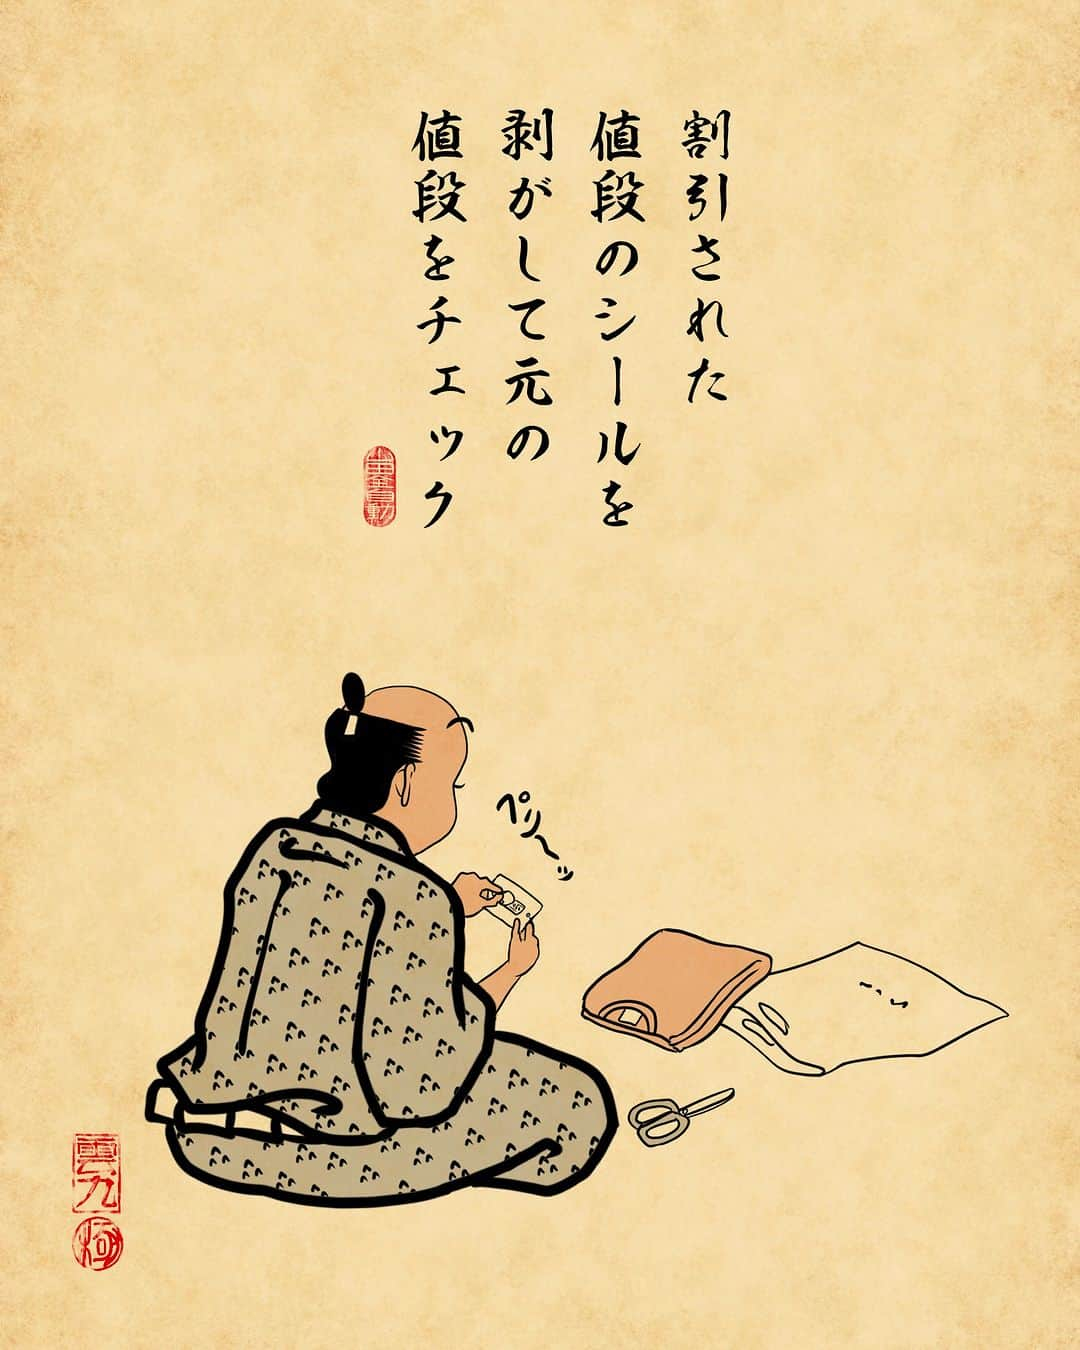 割引された
値段のシールを
剥がして元の
値段をチェック
ペリ〜ッ